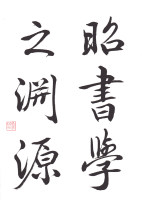 昭書學
之淵源